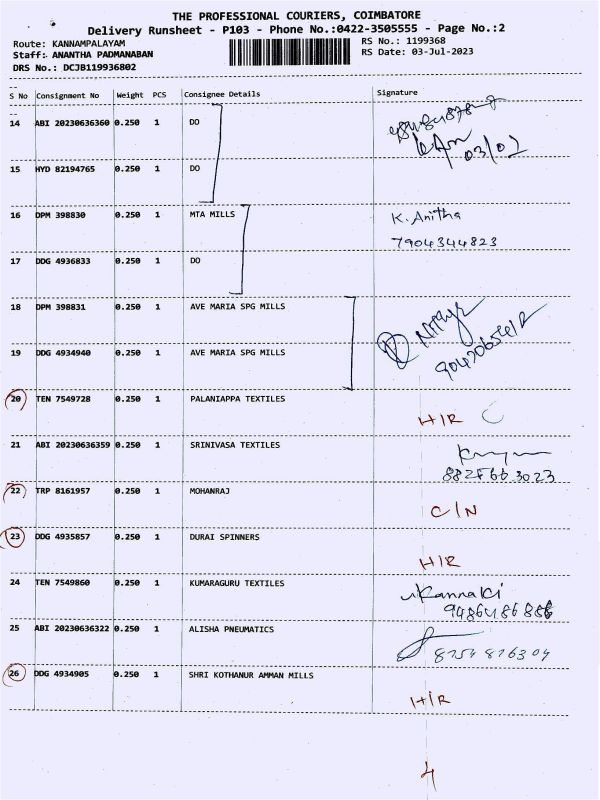 THE PROFESSIONAL COURIERS, COIMBATORE
Delivery Runsheet - P103 - Phone No.:0422-3505555 - Page No.:2
Route: KANNAMPALAYAM
RS No.: 1199368
Staff: ANANTHA PADMANABAN
RS Date: 03-Jul-2023
DRS No.: DCJB119936802
S No Consignment No Weight PCS Consignee Details Signature
14 ABI 20230636360 0.250 1 DO
03/07
15 HYD 82194765 0.250 1 DO
16 DPM 398830 0.250 1 MTA MILLS K. Anitha
7904344823
17 DDG 4936833 0.250 1 DO
18 DPM 398831 0.250 1 AVE MARIA SPG MILLS
19 DDG 4934940 0.250 1 AVE MARIA SPG MILLS
20 TEN 7549728 0.250 1 PALANIAPPA TEXTILES
H/R
21 ABI 20230636359 0.250 1 SRINIVASA TEXTILES
22 TRP 8161957 0.250 1 MOHANRAJ
C/N
23 DDG 4935857 0.250 1 DURAI SPINNERS
H/R
24 TEN 7549860 0.250 1 KUMARAGURU TEXTILES Kannaki
25 ABI 20230636322 0.250 1 ALISHA PNEUMATICS
26 DDG 4934905 0.250 1 SHRI KOTHANUR AMMAN MILLS
H/R
4